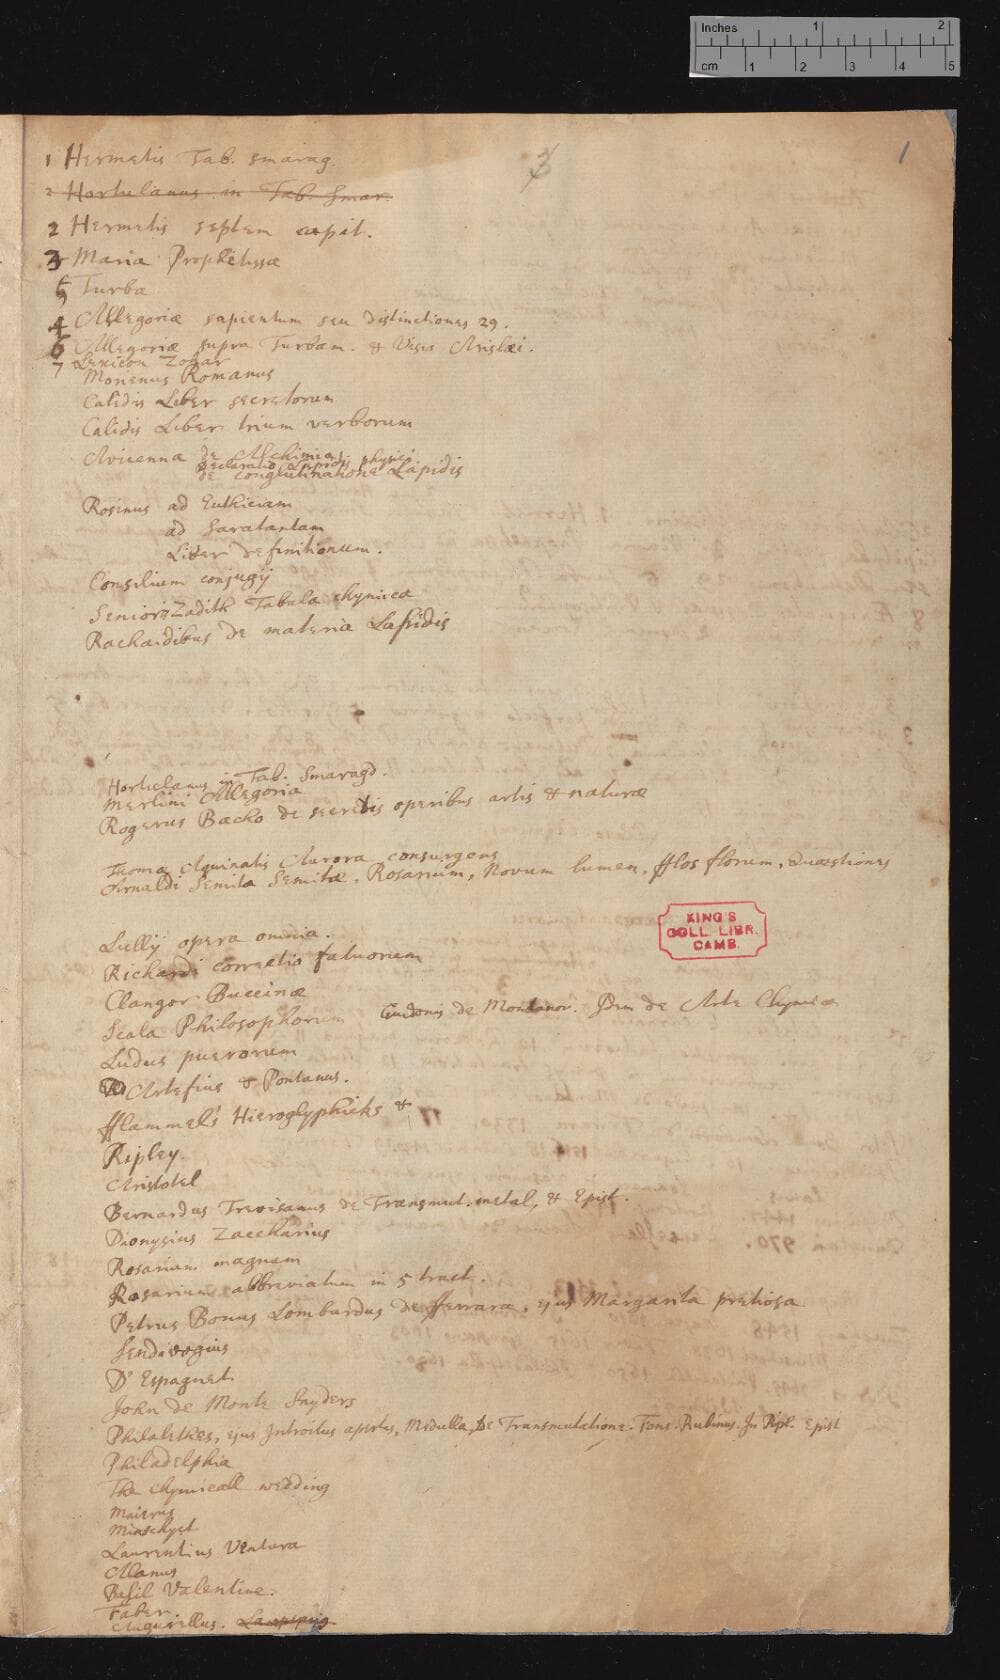 Inches 1 2
cm 1 2 3 4 5
3 1
1 Hermetis Tab. smarag.
2 Hortulanus in Tab. Smar.
2 Hermetis septem capit.
3 Maria Prophetissæ
5 Turba
4 Allegoriæ sapientum seu distinctiones 29.
6 Allegoriæ supra Turbam. & Visis Arislæi.
7 Lexicon Zohar
Morienus Romanus
Calidis Liber secretorum
Calidis Liber trium verborum
Avicenna de Alchimia
Declaratio Lapidis physici
de conglutinatione Lapidis
Rosinus ad Euthiciam
ad Saratantam
Liber definitionum.
Consilium conjugij
Senioris Zadith Tabula chymica
Rachaidibus de materia Lapidis
Hortulanus in Tab. Smaragd.
Merlini Allegoria
Rogerus Bacho de secretis operibus artis & naturæ
Thoma Aquinatis Aurora consurgens
Arnaldi Semita Semitæ, Rosarium, Novum lumen, fflos florum, Quæstiones
KING'S
COLL. LIBR.
CAMB.
Lullij opera omnia.
Richardi correctio fatuorum
Clangor Buccinæ
Scala Philosophorum Guidonis de Montanor. Idem de Arte Chymica
Ludus puerorum
Artefius & Pontanus.
fflammel's Hieroglyphicks &
Ripley.
Aristotel
Bernardus Trevisanus de Transmut. metal, & Epist.
Dionysius Zaccharius
Rosarium magnum
Rosarium abbreviatum in 5 tract.
Petrus Bonus Lombardus de fferrara, ejus Margarita pretiosa
Sendivogius
D' Espagnet
John de Monte Snyders
Philalethes, ejus Introitus apertus, Medulla, De Transmutatione. Fons. Rubinus. In Ripl. Epist
Philadelphia
The chymicall wedding
Maierus
Minschyct
Laurentius Ventura
Alanus
Basil Valentine.
Faber
Augurellus.